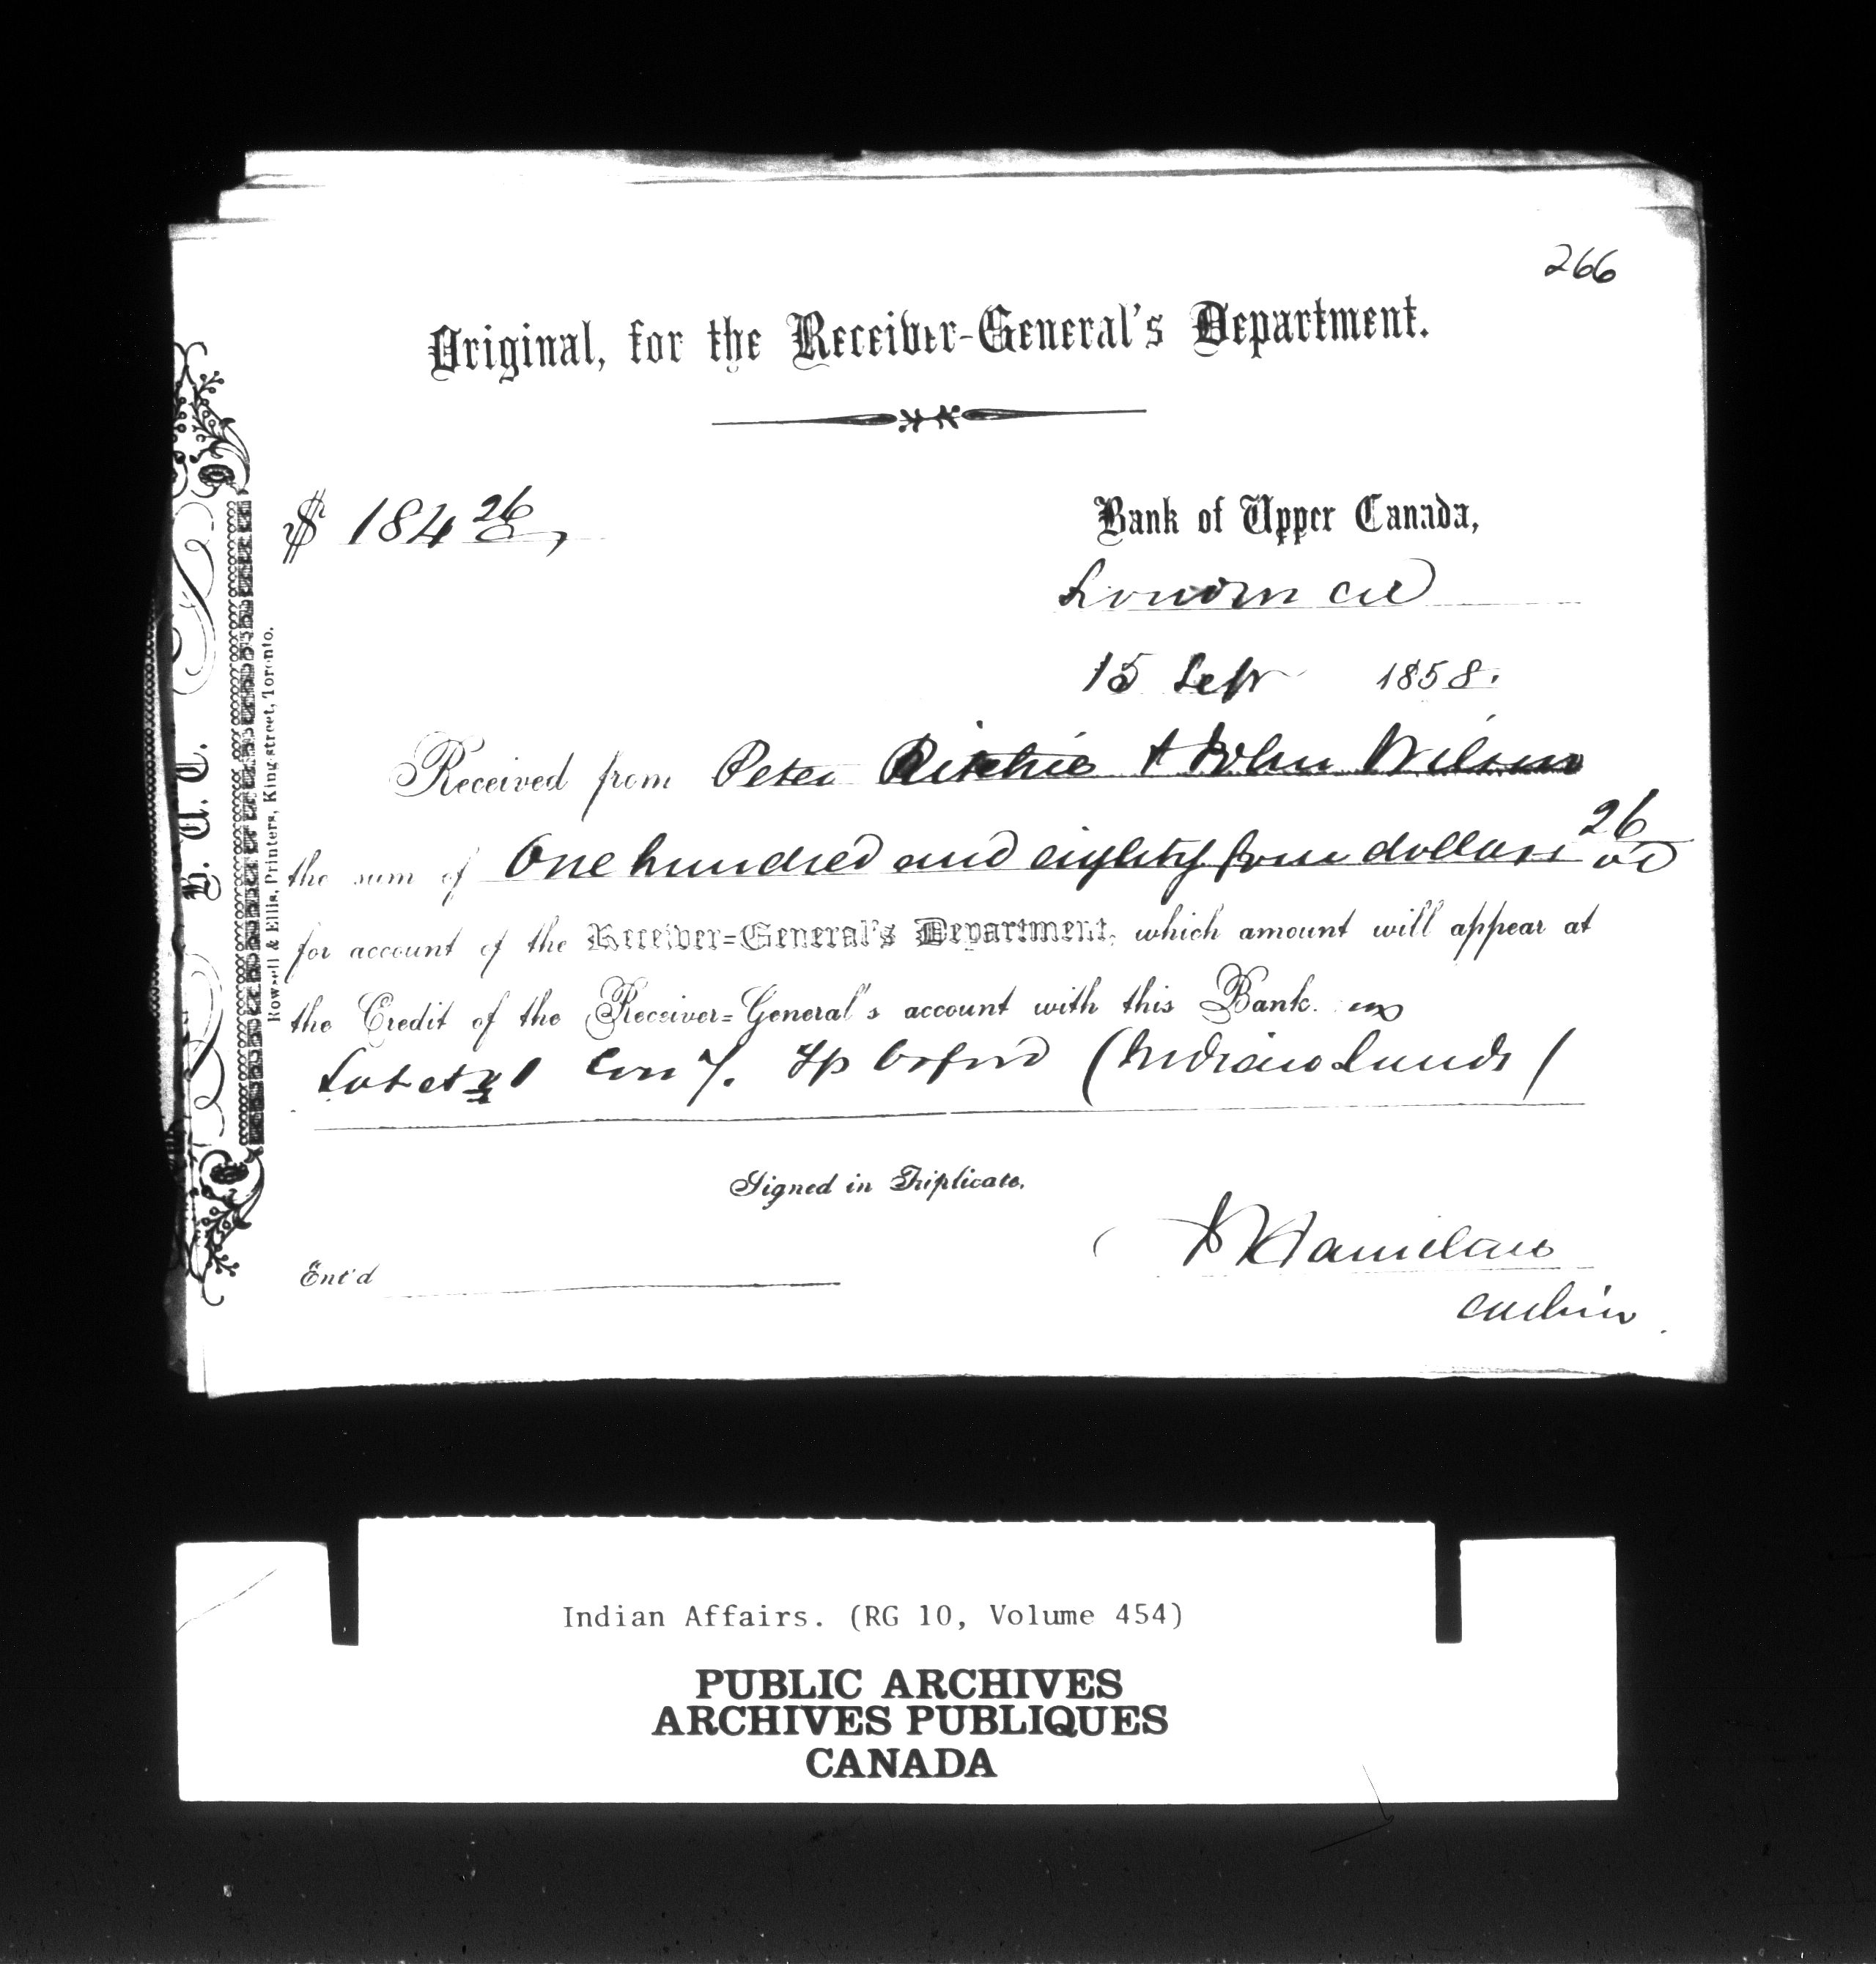 266
Original, for the Receiver-General's Department.
$ 184 26
Bank of Upper Canada,
London CW
15 Sepr 1858.
Received from Peter Ritchie & John Wilson
the sum of One hundred and eighty four dollars 26
for account of the Receiver=General's Department, which amount will appear at
the Credit of the Receiver=General's account with this Bank. on
Lot Con 7. Tp Orford (Indian Lands)
Signed in Triplicate,
Hamilton
Ent'd
Cashier
B. U. C.
Rowsell & Ellis, Printers, King street, Toronto.
Indian Affairs. (RG 10, Volume 454)
PUBLIC ARCHIVES
ARCHIVES PUBLIQUES
CANADA